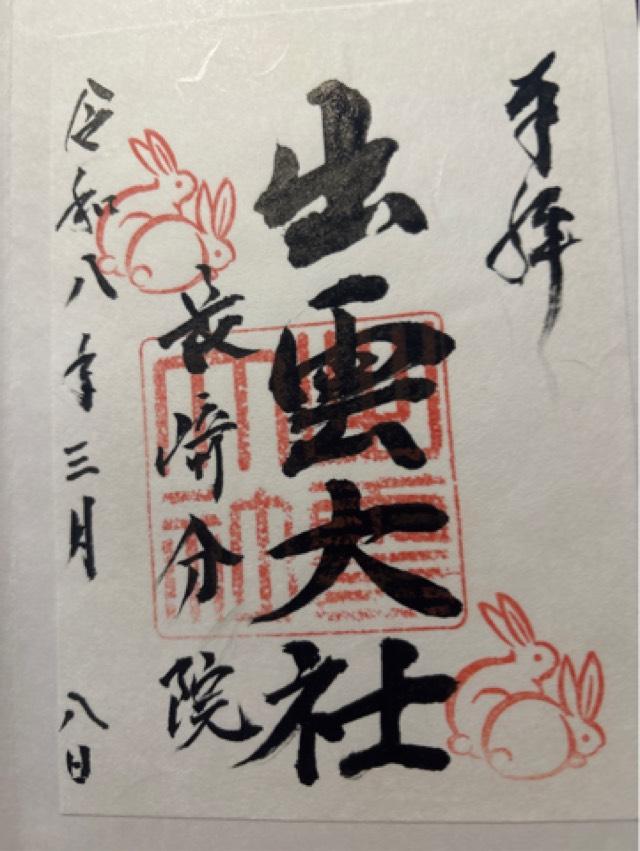 奉拝
出雲大社
長崎分院
令和八年三月 八日
出雲大社